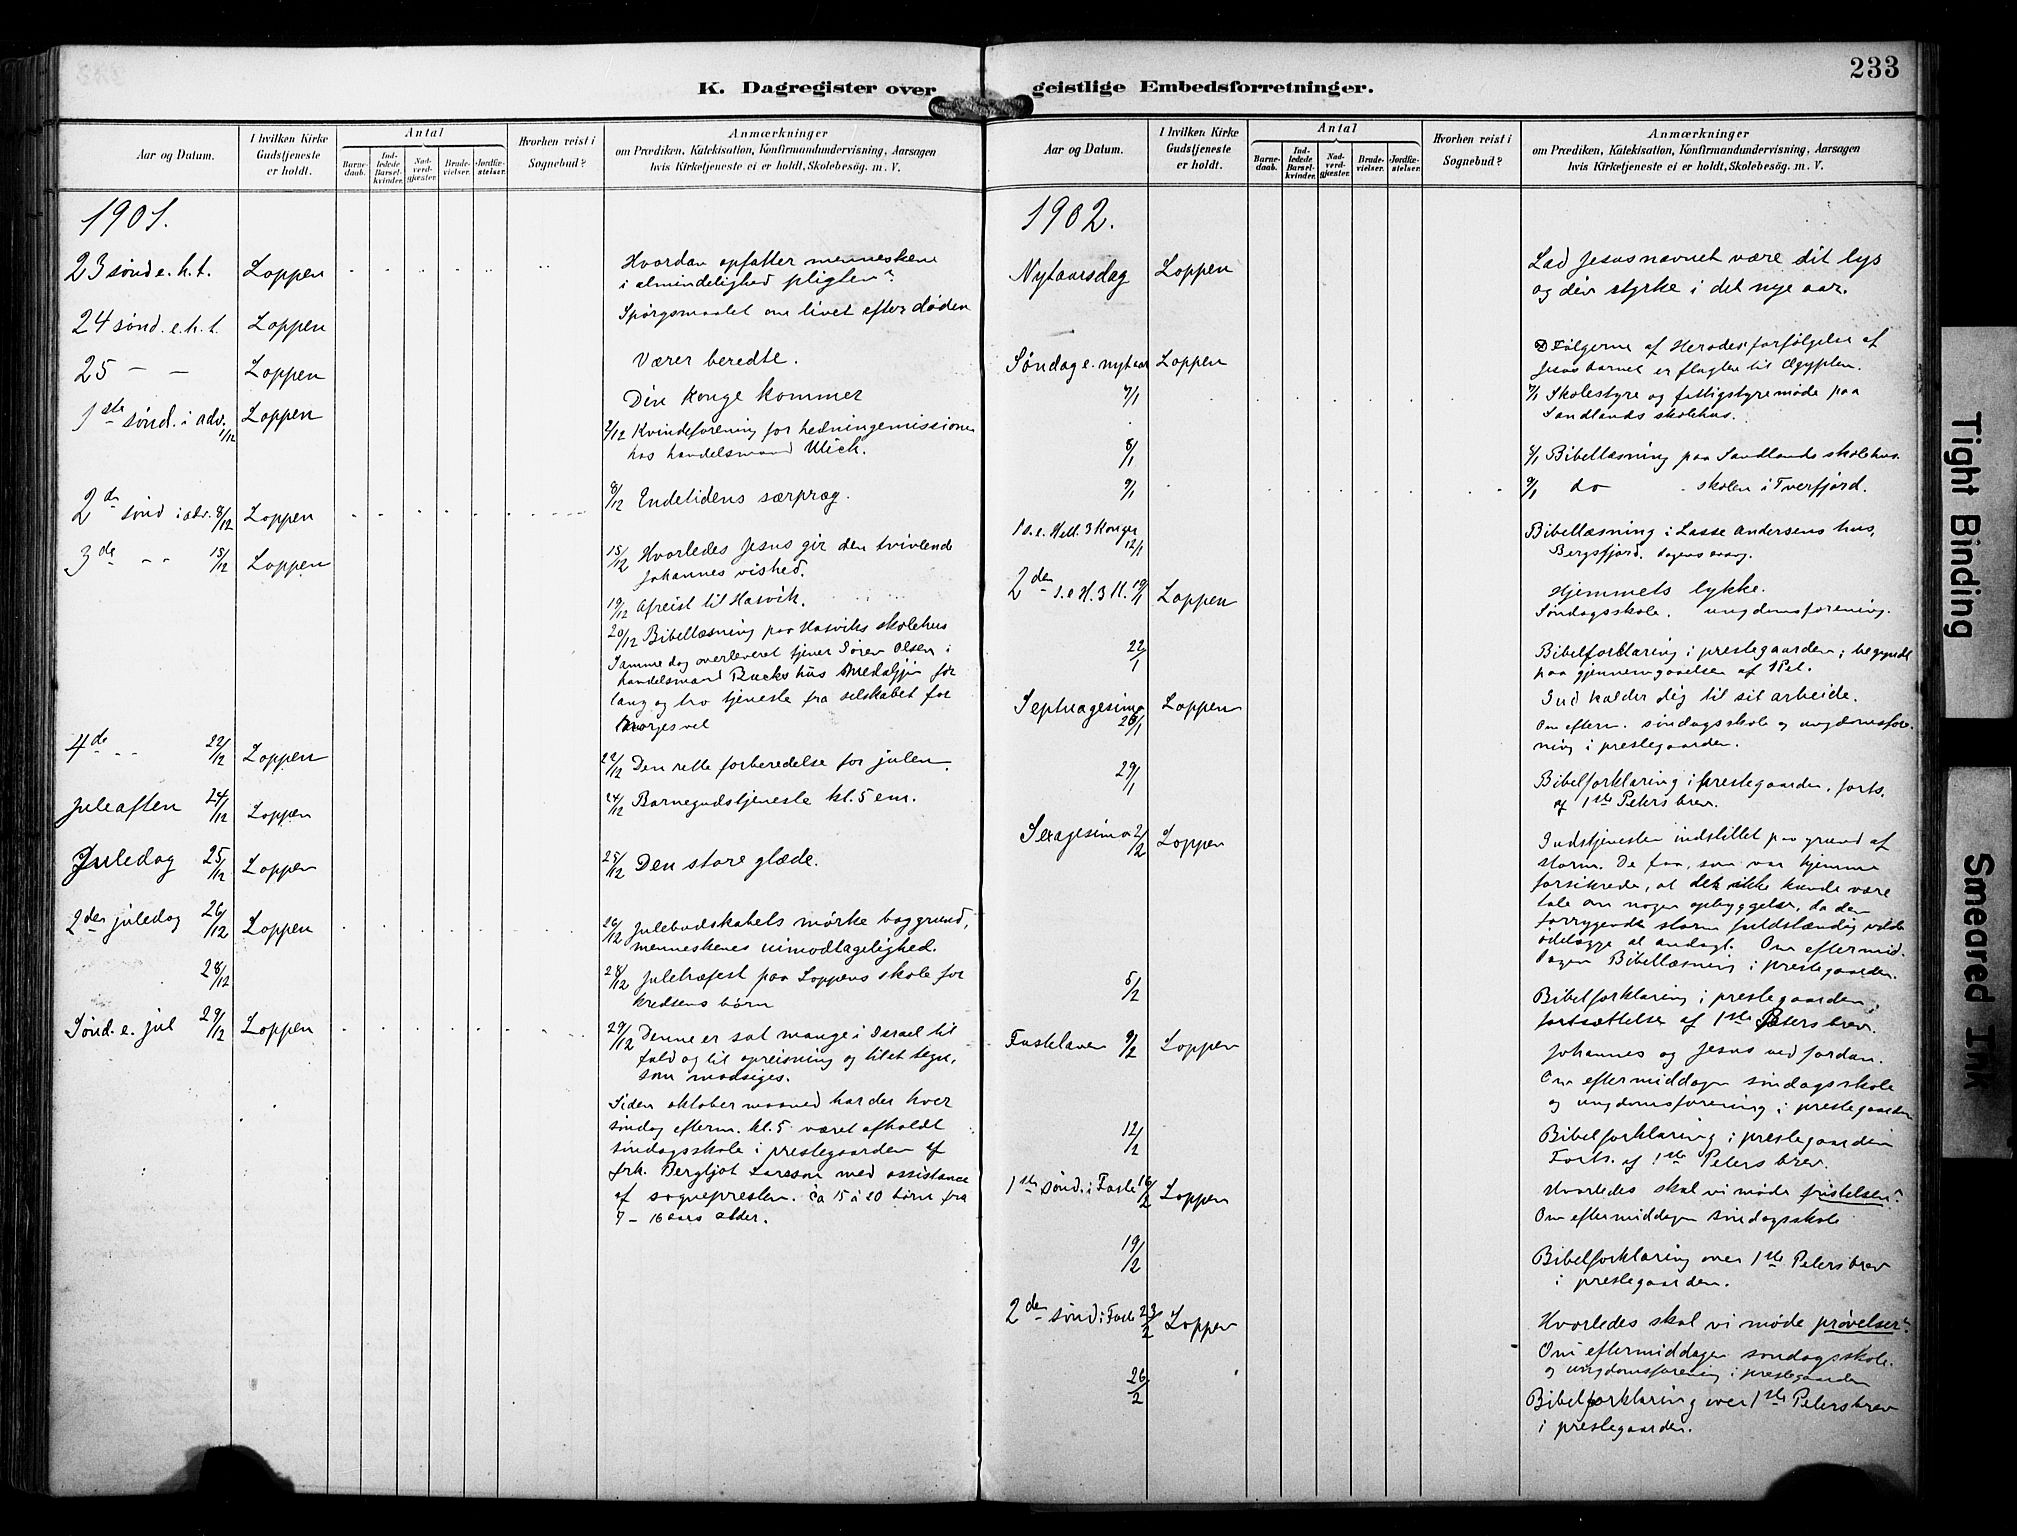 K. Dagregister over
Aar og Datum.
I hvilken Kirke Gudstjeneste er holdt.
Antal
Barnedaab.
Indledede Barselkvinder.
Nadverdgjæster.
Brudevielser.
Jordfæstelser.
Hvorhen reist i Sognebud?
Anmærkninger
om Prædiken, Katekisation, Konfirmandundervisning, Aarsagen
hvis Kirketjeneste ei er holdt, Skolebesøg. m. V.
1901.
23 sønd e. h. t. Loppen Hvordan opfatter menneskene
i almindelighed pligten?
24 sønd. e. h. t. Loppen Spørgsmaalet om livet efter døden
25 — — Loppen Værer beredte.
1ste sønd. i adv. 1/12 Loppen Din konge kommer
2/12 Kvindeforening for hedningemissionen
hos handelsmand Ulich.
2de sønd i adv. 8/12 Loppen 8/12 Endetidens særpræg.
3de - - 15/12 Loppen 15/12 Hvorledes Jesus gir den tvivlende
Johannes vished.
19/12 Afreist til Hasvik.
20/12 Bibellæsning paa Hasviks skolehus
Samme dag overleveret tjener Søren Olsen i
handelsmand Bucks hus medaljen for
lang og tro tjeneste fra selskabet for
Norges vel
4de - - 22/12 Loppen 22/12 Den rette forberedelse for julen.
Juleaften 24/12 Loppen 24/12 Barnegudstjeneste kl. 5 em.
Juledag 25/12 Loppen 25/12 Den store glæde.
2den juledag 26/12 Loppen 26/12 Julebudskabets mørke baggrund,
menneskenes uimodtagelighed.
28/12 28/12 Juletræfest paa Loppens skole for
kredsens børn
Sønd. e. jul 29/12 Loppen 29/12 Denne er sat mange i Israel til
fald og til opreisning og til et tegn,
som modsiges.
Siden oktober maaned har der hver
søndag efterm. kl. 5 været afholdt
søndagsskole i prestegaarden af
frk. Bergljot Larsson med assistance
af sognepresten. ca 15 à 20 børn fra
7 – 16 aars alder.
geistlige Embedsforretninger.
233
Aar og Datum.
I hvilken Kirke Gudstjeneste er holdt.
Antal
Barnedaab.
Indledede Barselkvinder.
Nadverdgjæster.
Brudevielser.
Jordfæstelser.
Hvorhen reist i Sognebud?
Anmærkninger
om Prædiken, Katekisation, Konfirmandundervisning, Aarsagen
hvis Kirketjeneste ei er holdt, Skolebesøg. m. V.
1902.
Nytaarsdag Loppen Lad Jesusnavnet være dit lys
og din styrke i det nye aar.
Søndag e. nytaar Loppen Følgerne af Herodes' forfølgelse af
Jesusbarnet er flugten til Ægypten.
7/1 7/1 Skolestyre og fattigstyremøde paa
Sandlands skolehus.
8/1 8/1 Bibellæsning paa Sandlands skolehus.
9/1 9/1 do skolen i Tverfjord.
1 s. e. Hell. 3 Konger 12/1 Bibellæsning i Lasse Andersens hus,
Bergsfjord. Dagens evang.
2den s. e H. 3 K. 19/1 Loppen Hjemmets lykke.
Søndagsskole. ungdomsforening.
22/1 Bibelforklaring i prestegaarden; begyndt
paa gjennemgaaelsen af 1 Pet.
Septuagesima 26/1 Loppen Gud kalder dig til sit arbeide.
Om efterm. søndagsskole og ungdomsfore-
ning i prestegaarden.
29/1 Bibelforklaring i prestegaarden, forts.
af 1ste Peters brev.
Sexagesima 2/2 Loppen Gudstjenesten indstillet paa grund af
storm. De faa, som var hjemme
forsikrede, at det ikke kunde være
tale om nogen opbyggelse, da den
forrygende storm fuldstændig vilde
ødelægge al andagt. Om eftermid-
dagen Bibellæsning i prestegaarden.
5/2 Bibelforklaring i prestegaarden,
fortsættelse af 1ste Peters brev.
Fastelaven 9/2 Loppen Johannes og Jesus ved Jordan.
Om eftermiddagen søndagsskole
og ungdomsforening i prestegaarden
12/2 Bibelforklaring i prestegaarden
Forts. af 1ste Peters brev.
1ste sønd. i Faste 16/2 Loppen Hvorledes skal vi møde fristelsen?
Om eftermiddagen søndagsskole
19/2 Bibelforklaring over 1ste Peters brev
i prestegaarden.
2den sønd i Faste 23/2 Loppen Hvorledes skal vi møde prøvelser?
Om eftermiddagen søndagsskole.
og ungdomsforening i prestegaarden
26/2 Bibelforklaring over 1ste Peters brev
i prestegaarden.
Tight Binding
Smeared Ink